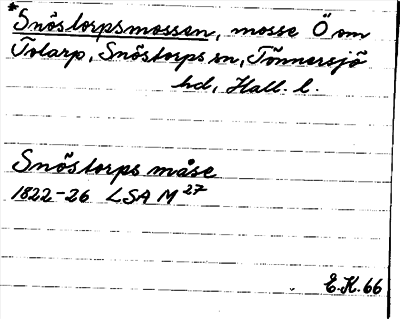 *Snöstorpsmossen, mosse Ö om
Tolarp, Snöstorps sn, Tönnersjö
hd, Hall. l.
Snöstorps måse
1822-26 LSA M 27
E.K. 66